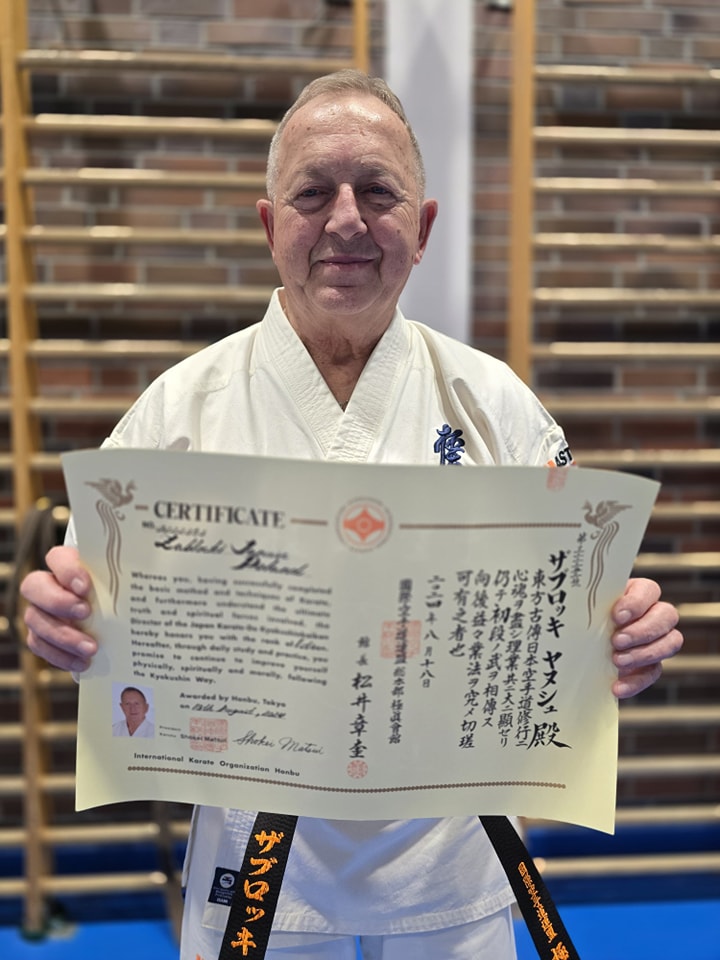 CERTIFICATE
NO.
Zabłocki Janusz
Poland
Whereas you, having successfully completed
the basic method and techniques of Karate,
and furthermore understand the ultimate
truth and spiritual forces involved, the
Director of the Japan Karate-do Kyokushinkaikan
hereby honors you with the rank of 1.dan
Hereafter, through daily study and practice, you
promise to continue to improve yourself
physically, spiritually and morally, following
the Kyokushin Way.
Awarded by Honbu, Tokyo
on 18th August, 2024
President
Shokei Matsui
Shokei Matsui
International Karate Organization Honbu
ザブロッキ ヤヌシュ 殿
東方古傳日本空手道修行ニ
心魂ヲ盡シ理業共ニ大ニ顯セリ
仍テ初段ノ武ヲ相傳ス
向後益々業法ヲ究メ切瑳
可有之者也
二〇二四年八月十八日
國際空手道連盟総本部 極眞會館
館長 松井章圭
極
ザブロッキ
国際空手道連盟 極